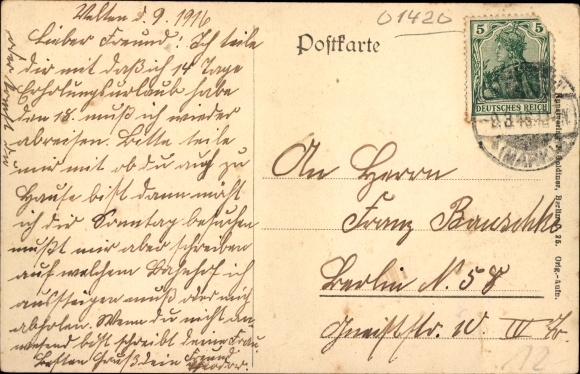 Velten d. 9. 1916
Lieber Freund! Ich teile
dir mit daß ich 14 Tage
Erholungsurlaub habe
den 18. muß ich wieder
abreisen. Bitte teile
mir mit ob du auch zu
Hause bist dann möcht
ich dir Sonntag besuchen
mußt mir aber schreiben
auf welchem Bahnhof ich
aussteigen muß oder mich
abholen. Wenn du nicht an-
wesend bist schreibt deine Frau
Besten Gruß dein Freund
01420
Postkarte
5 5
DEUTSCHES REICH
(MARK)
An Herrn
Franz Bauschke
Berlin N 58
Gneiststr. 10. IV Tr.
Berlin O. 25. Orig.-Aufn.
12